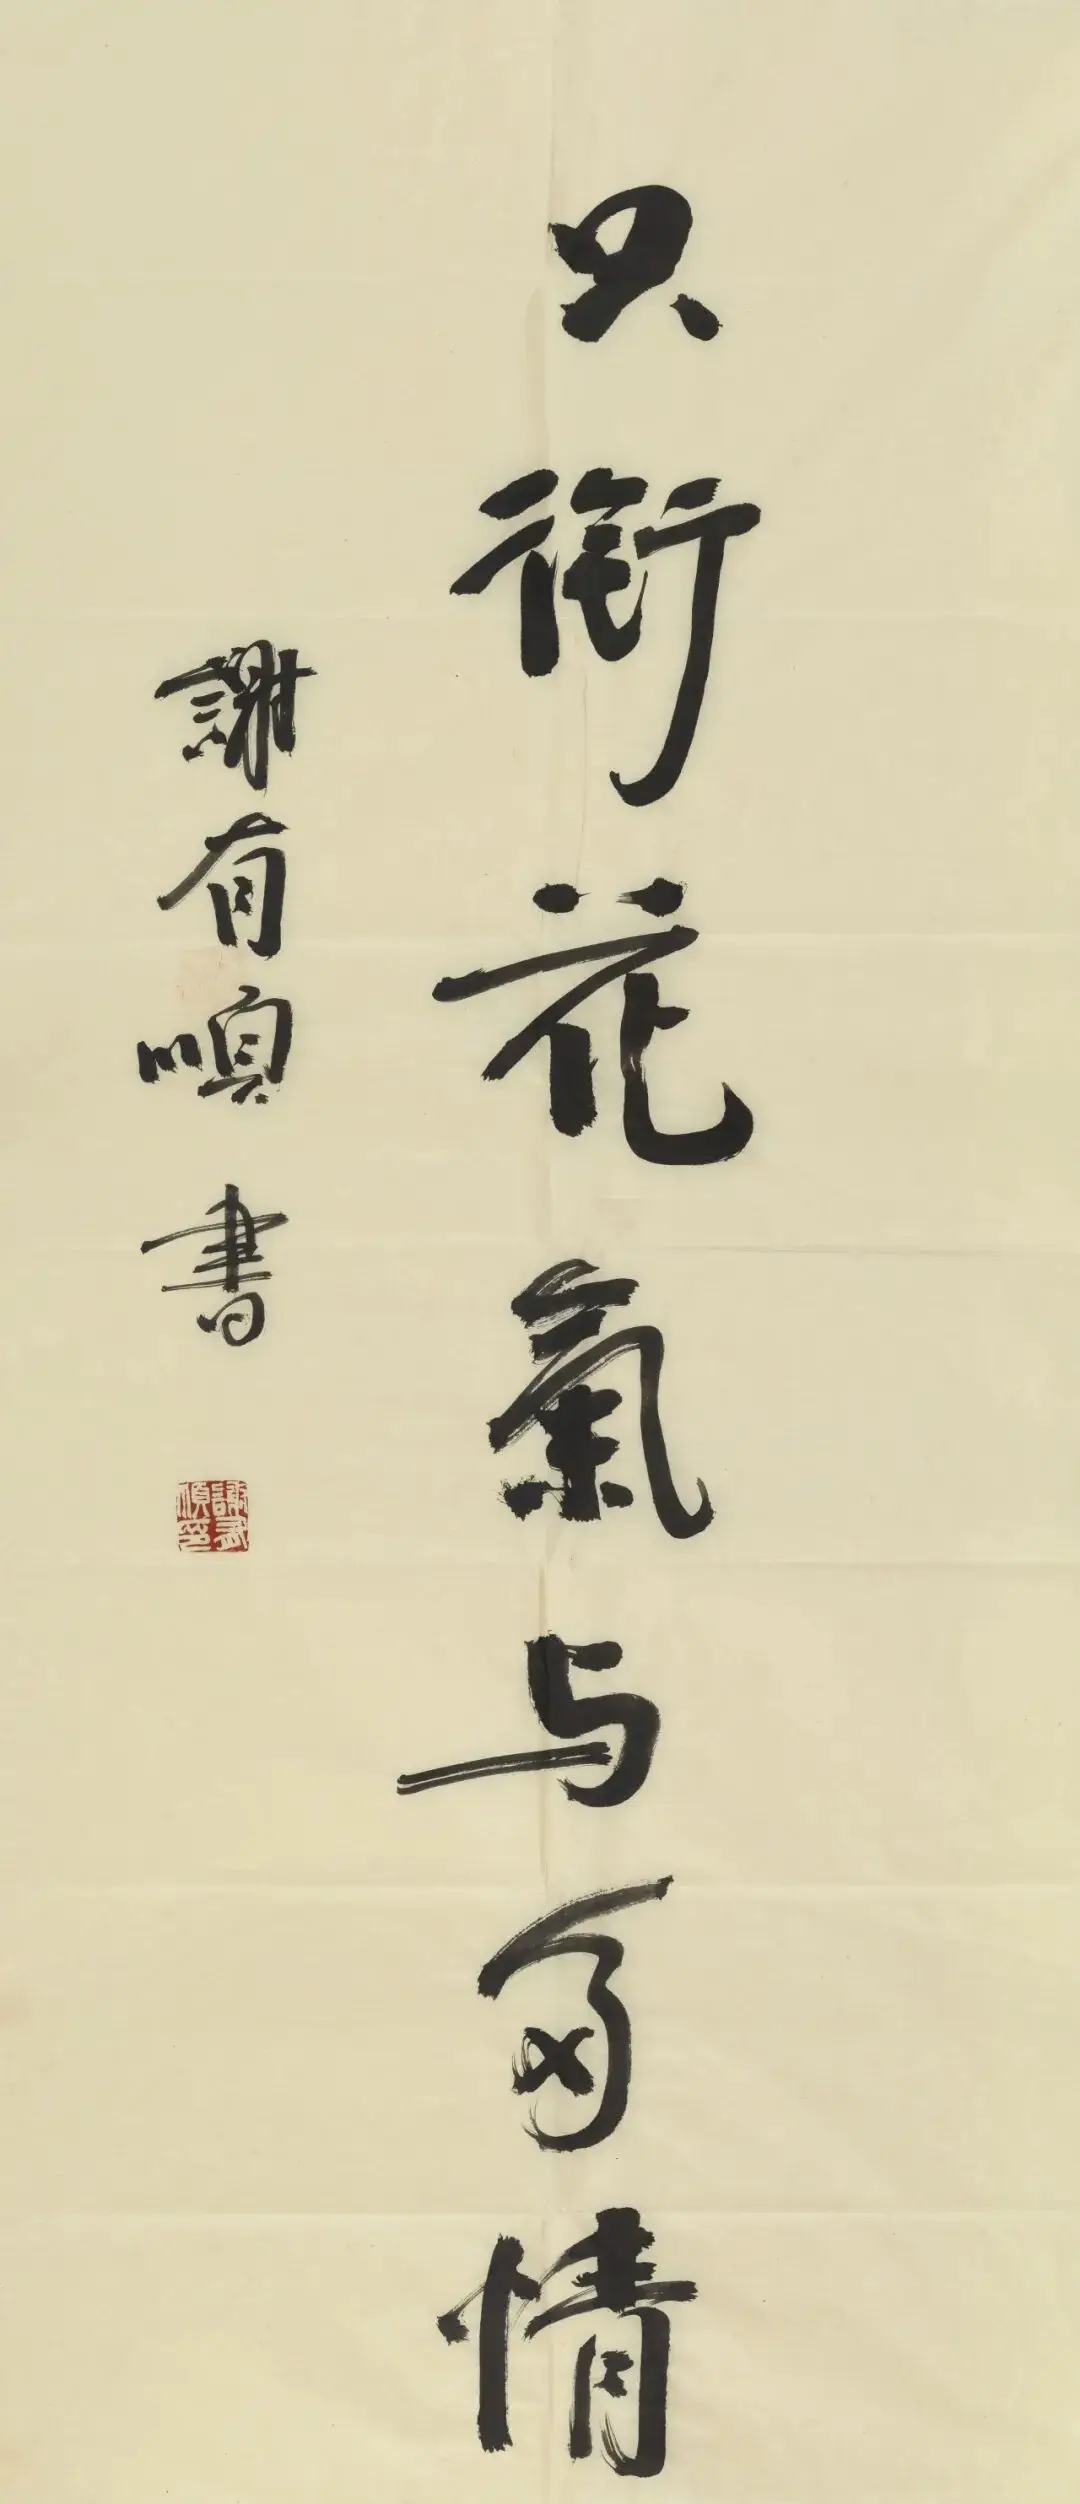 只銜花氣与多情
謝有順書
謝有順印